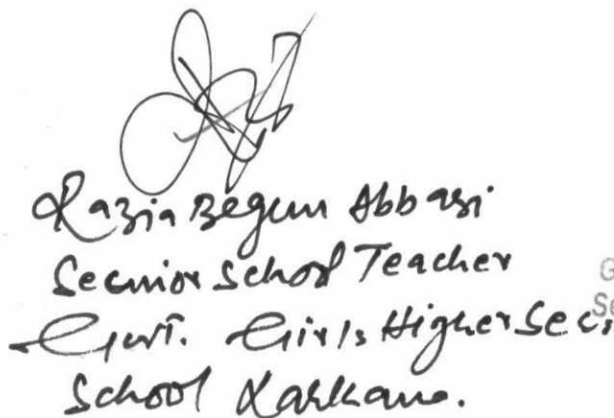 Razia Begum Abbasi
Secunior School Teacher
Govt. Girls Higher Sec;
School Larkana.
G
Se